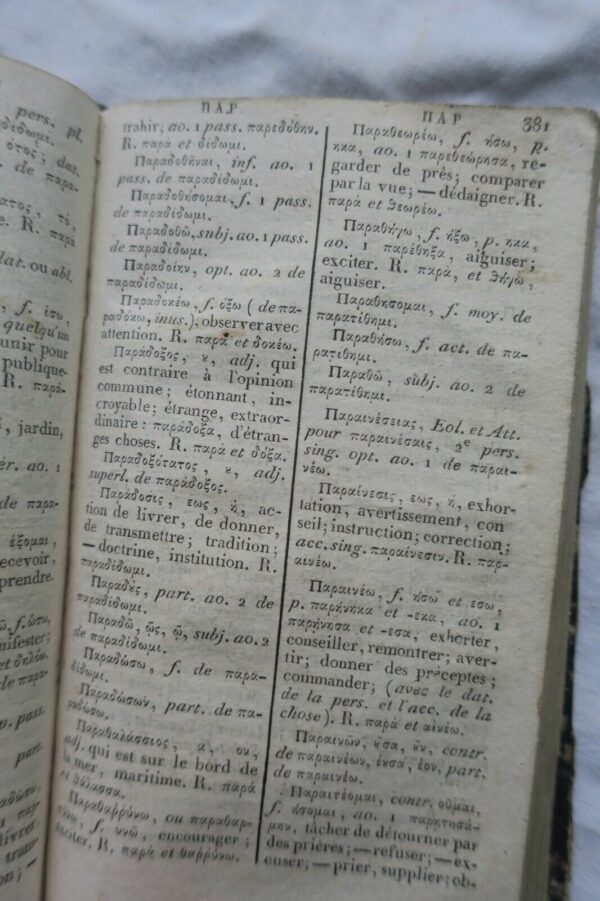 pers. pl.
ΠΑΡ
trahir; ao. 1 pass. παρεδόθην.
R. παρὰ et δίδωμι.
Παραδοθῆναι, inf. ao. 1
pass. de παραδίδωμι.
Παραδοθήσομαι, f. 1 pass.
de παραδίδωμι.
Παραδοθῶ, subj. ao. 1 pass.
de παραδίδωμι.
Παραδοίην, opt. ao. 2 de
παραδίδωμι.
Παραδοκέω, f. όξω (de πα-
ραδόκω, inus.), observer avec
attention. R. παρὰ et δοκέω.
Παράδοξος, ȣ, adj. qui
est contraire à l'opinion
commune; étonnant, in-
croyable; étrange, extraor-
dinaire: παράδοξα, d'étran-
ges choses. R. παρὰ et δόξα.
Παραδοξότατος, ȣ, adj.
superl. de παράδοξος.
Παράδοσις, εως, ἡ, ac-
tion de livrer, de donner,
de transmettre; tradition;
—doctrine, institution. R.
παραδίδωμι.
Παραδȣ́ς, part. ao. 2 de
παραδίδωμι.
Παραδῶ, ῷς, ῷ, subj. ao. 2
de παραδίδωμι.
Παραδώσω, f. de παρα-
δίδωμι.
Παραδώσων, part. de πα-
ραδώσω.
Παραθαλάσσιος, α, ον,
adj. qui est sur le bord de
la mer, maritime. R. παρὰ
et θάλασσα.
Παραθαῤῥύνω, ou παραθαρ-
σύνω, f. υνῶ, encourager;
exciter. R. παρὰ et θαῤῥύνω.
ΠΑΡ 381
Παραθεωρέω, f. ήσω, p.
ηκα, ao. 1 παρεθεώρησα, re-
garder de près; comparer
par la vue; —dédaigner. R.
παρὰ et θεωρέω.
Παραθήγω, f. ήξω, p. ηκα,
ao. 1 παρέθηξα, aiguiser;
exciter. R. παρὰ, et θήγω,
aiguiser.
Παραθήσομαι, f. moy. de
παρατίθημι.
Παραθήσω, f. act. de πα-
ρατίθημι.
Παραθῶ, subj. ao. 2 de
παρατίθημι.
Παραινέσειας, Eol. et Att.
pour παραινέσαις, 2e pers.
sing. opt. ao. 1 de παραι-
νέω.
Παραίνεσις, εως, ἡ, exhor-
tation, avertissement, con
seil; instruction; correction;
acc. sing. παραίνεσιν. R. παρ-
αινέω.
Παραινέω, f. ήσω et έσω,
p. παρῄνηκα et -εκα, ao. 1
παρῄνησα et -εσα, exhorter,
conseiller, remontrer; aver-
tir; donner des préceptes;
commander; (avec le dat.
de la pers. et l'acc. de la
chose). R. παρὰ et αἰνέω.
Παραινῶν, ȣ͂σα, ȣ͂ν, contr.
de παραινέων, έȣσα, έον, part.
de παραινέω.
Παραιτέομαι, contr. οῦμαι,
f. ήσομαι, ao. 1 παρῃτησά-
μην, tâcher de détourner par
des prières; —refuser; —ex-
cuser; —prier, supplier; ob-